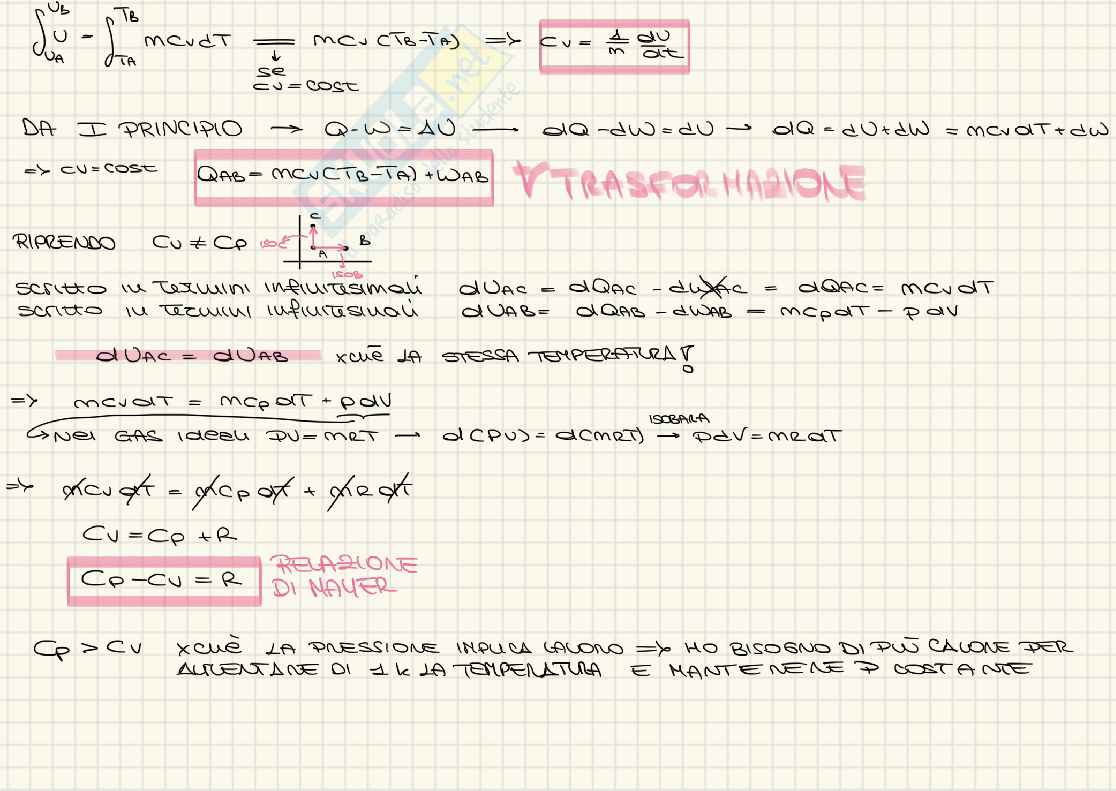 ∫_{UA}^{UB} U = ∫_{TA}^{TB} mcvdT = mcv(TB-TA) => cv = 1/m dU/dt
↓
se
cv = cost
DA I PRINCIPIO → Q-W = ΔU — dQ-dW = dU → dQ = dU+dW = mcvdT + dW
=> cv = cost QAB = mcv(TB-TA) + WAB ∀ TRASFORMAZIONE
C
RIPRENDO Cv ≠ Cp isoc A B
ISOB
scritto in termini infinitesimali dUAC = dQAC - dWAC = dQAC = mcvdT
scritto in termini infinitesimali dUAB = dQAB - dWAB = mcpdT - pdV
dUAC = dUAB xchè LA STESSA TEMPERATURA!
=> mcvdT = mcpdT + pdV
↳ Nei GAS ideali PV = mRT → d(PV) = d(mRT) ISOBARA → PdV = mRdT
=> mcvdT = mcpdT + mRdT
Cv = Cp + R
Cp - Cv = R RELAZIONE
DI MAYER
Cp > Cv xchè LA PRESSIONE IMPLICA LAVORO => HO BISOGNO DI PIÙ CALORE PER
AUMENTARE DI 1K LA TEMPERATURA E MANTENERE P COSTANTE